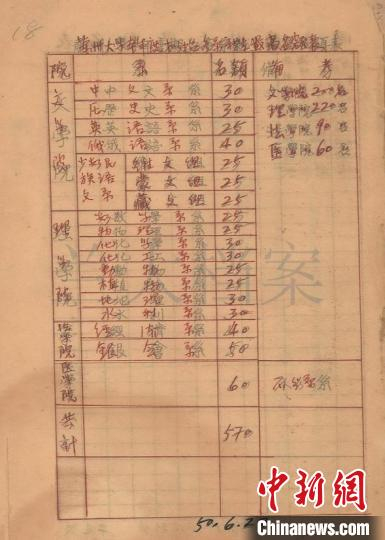 18
蘭州大學
院 系 名額 備考
文學院 中文系 30 文學院 200名
歷史系 30 理學院 220名
英語系 25 法學院 90名
俄語系 40 醫學院 60名
少數民族語文系 維文組 25
蒙文組 25
藏文組 25
理學院 數學系 25
物理系 25
化學系 30
化工系 30
動物系 25
植物系 25
地理系 30
水利系 30
法學院 經濟系 40
銀會系 50
醫學院 60 不分系
共計 570
50.6.2
中新网
Chinanews.com